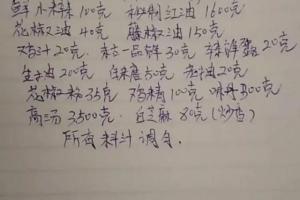 鲜小料 100克 秘制红油 1600克
花椒油 40克 藤椒油 150克
鸡汁 20克 一品鲜 30克 20克
生抽 200克 50克 20克
花椒粉 35克 鸡精 100克 味精 300克
高汤 3500克 白芝麻 80克(炒香)
所有料汁调匀.